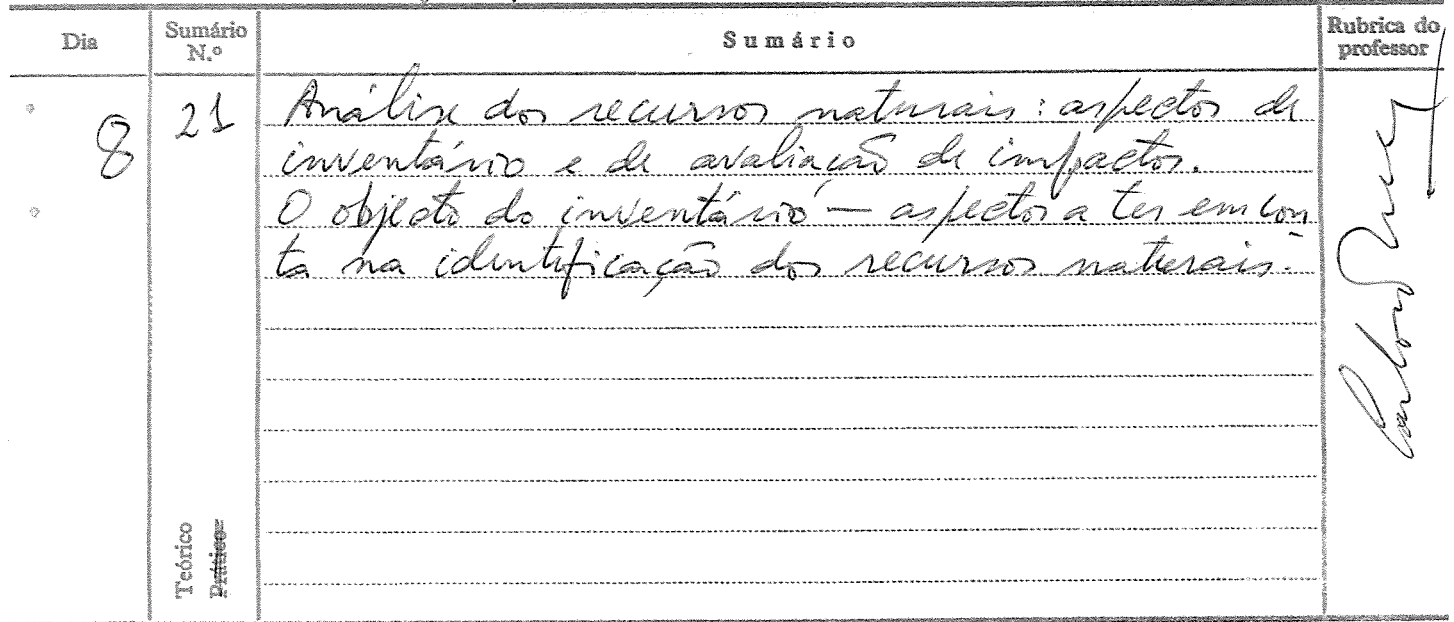 Dia
Sumário
N.º
Sumário
Rubrica do
professor
8
21
Análise dos recursos naturais: aspectos de
inventário e de avaliação de impactos.
O objecto do inventário — aspectos a ter em con
ta na identificação dos recursos naturais.
Teórico
Prático